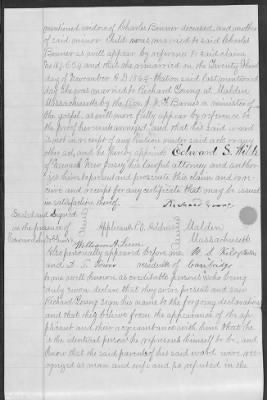 mentioned widow of Charles Bonner deceased, and mother
of said minor Child was married to said Charles
Bonner as will appear by reference to said claim
No 187,604 and that she remarried on the Twenty Third
day of November A D 1864. that on said last mentioned
day she was married to Richard Young at Malden
Massachusetts by the Rev. J. F. Barnes a minister of
the gospel, as will more fully appear by reference to
the proof herewith and that his said ward
is not in receipt of any pension under
other act, and he hereby appoints Edward S. Wild
of Newark New Jersey his lawful attorney and author-
izes him to present and prosecute this claim and to re-
ceive and receipt for any certificate that may be issued
in satisfaction hereof.
Richard Young
Sealed and Signed
in the presence of
Applicants P.O. Address Malden
Massachusetts
William
Also personally appeared before me
and residents of Cambridge
persons well known as credible persons who being
duly sworn declare that they were present and saw
Richard Young sign his name to the foregoing declaration
and that they believe from the appearance of the ap-
plicant and their acquaintance with him that he
is the identical person he represents himself to be, and
know that the said parents of his said ward were rec-
ognized as man and wife and so reputed in the